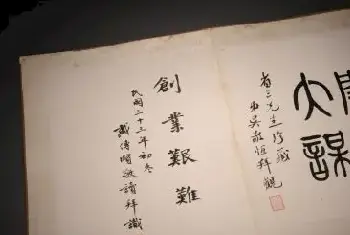 大
省三先生珍藏
弟吳敬恆拜觀
創業艱難
民國二十三年初冬
戴傳賢敬讀拜識